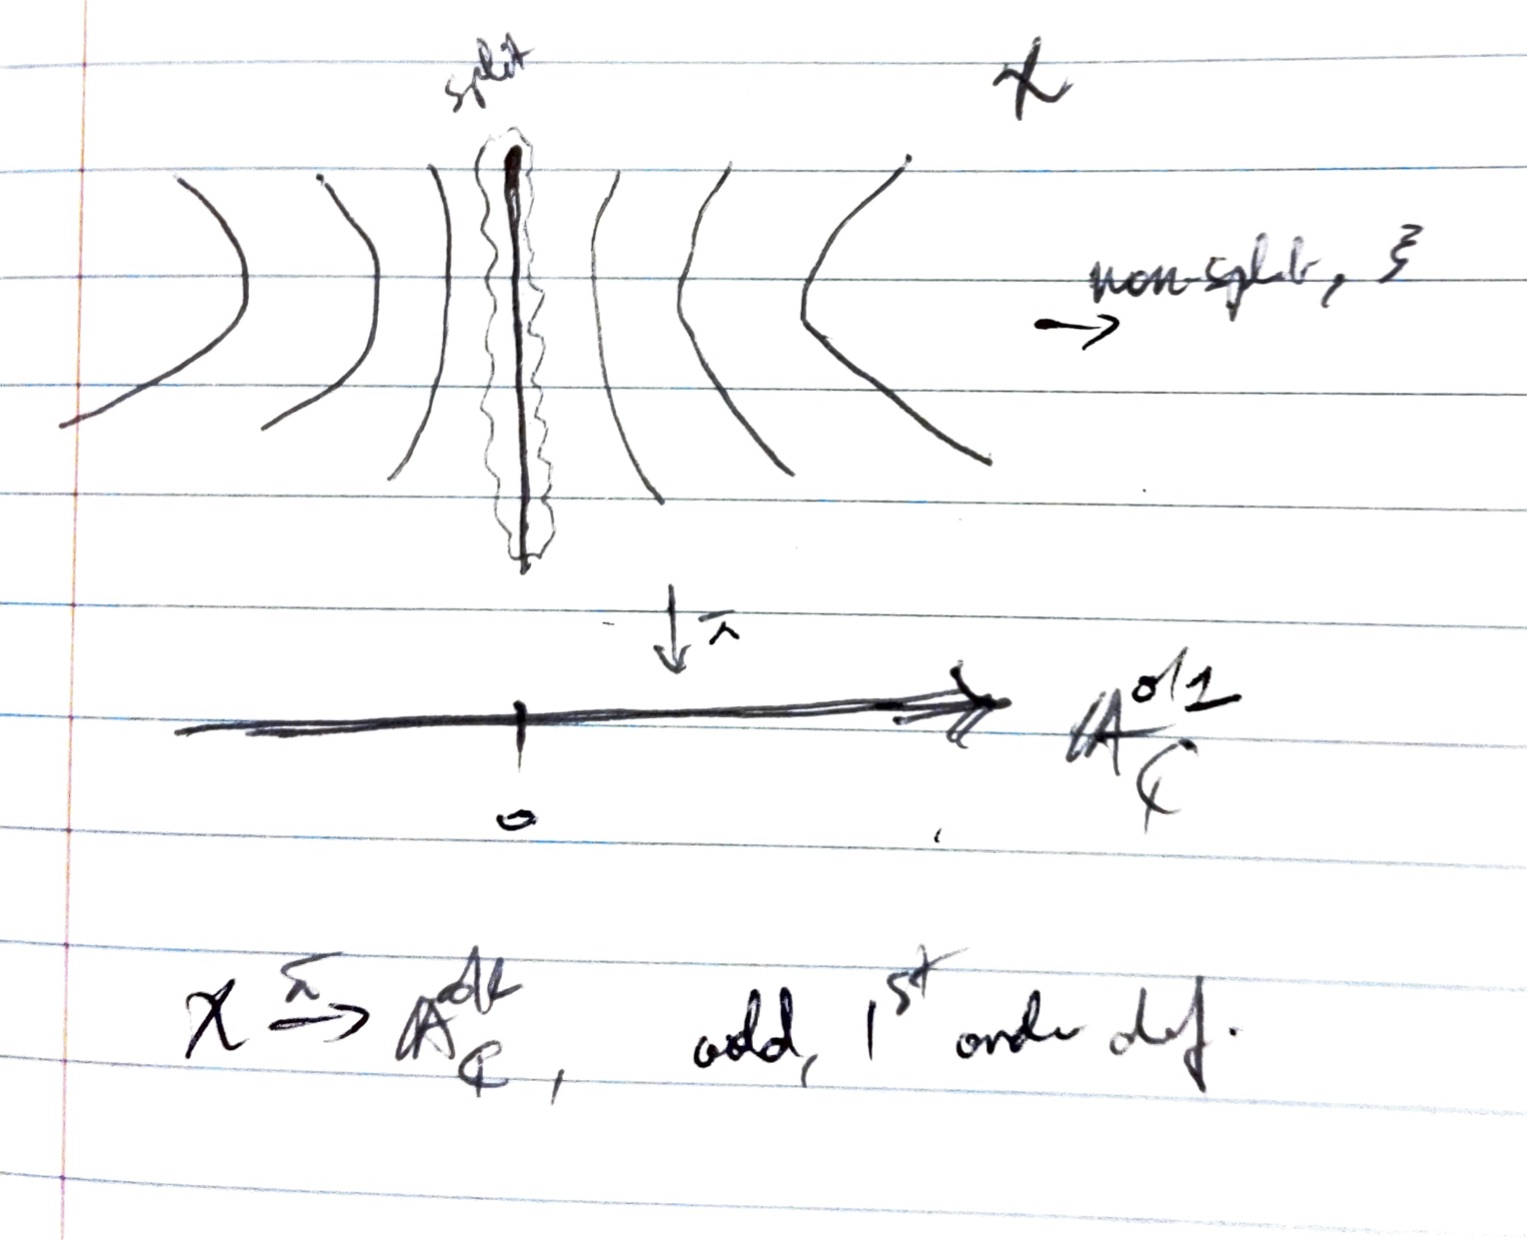 split
𝒳
non-split, ξ
→
↓ π
𝔸^{0|1}_ℂ
0
𝒳 →^{π} 𝔸^{0|1}_ℂ, odd, 1st order def.